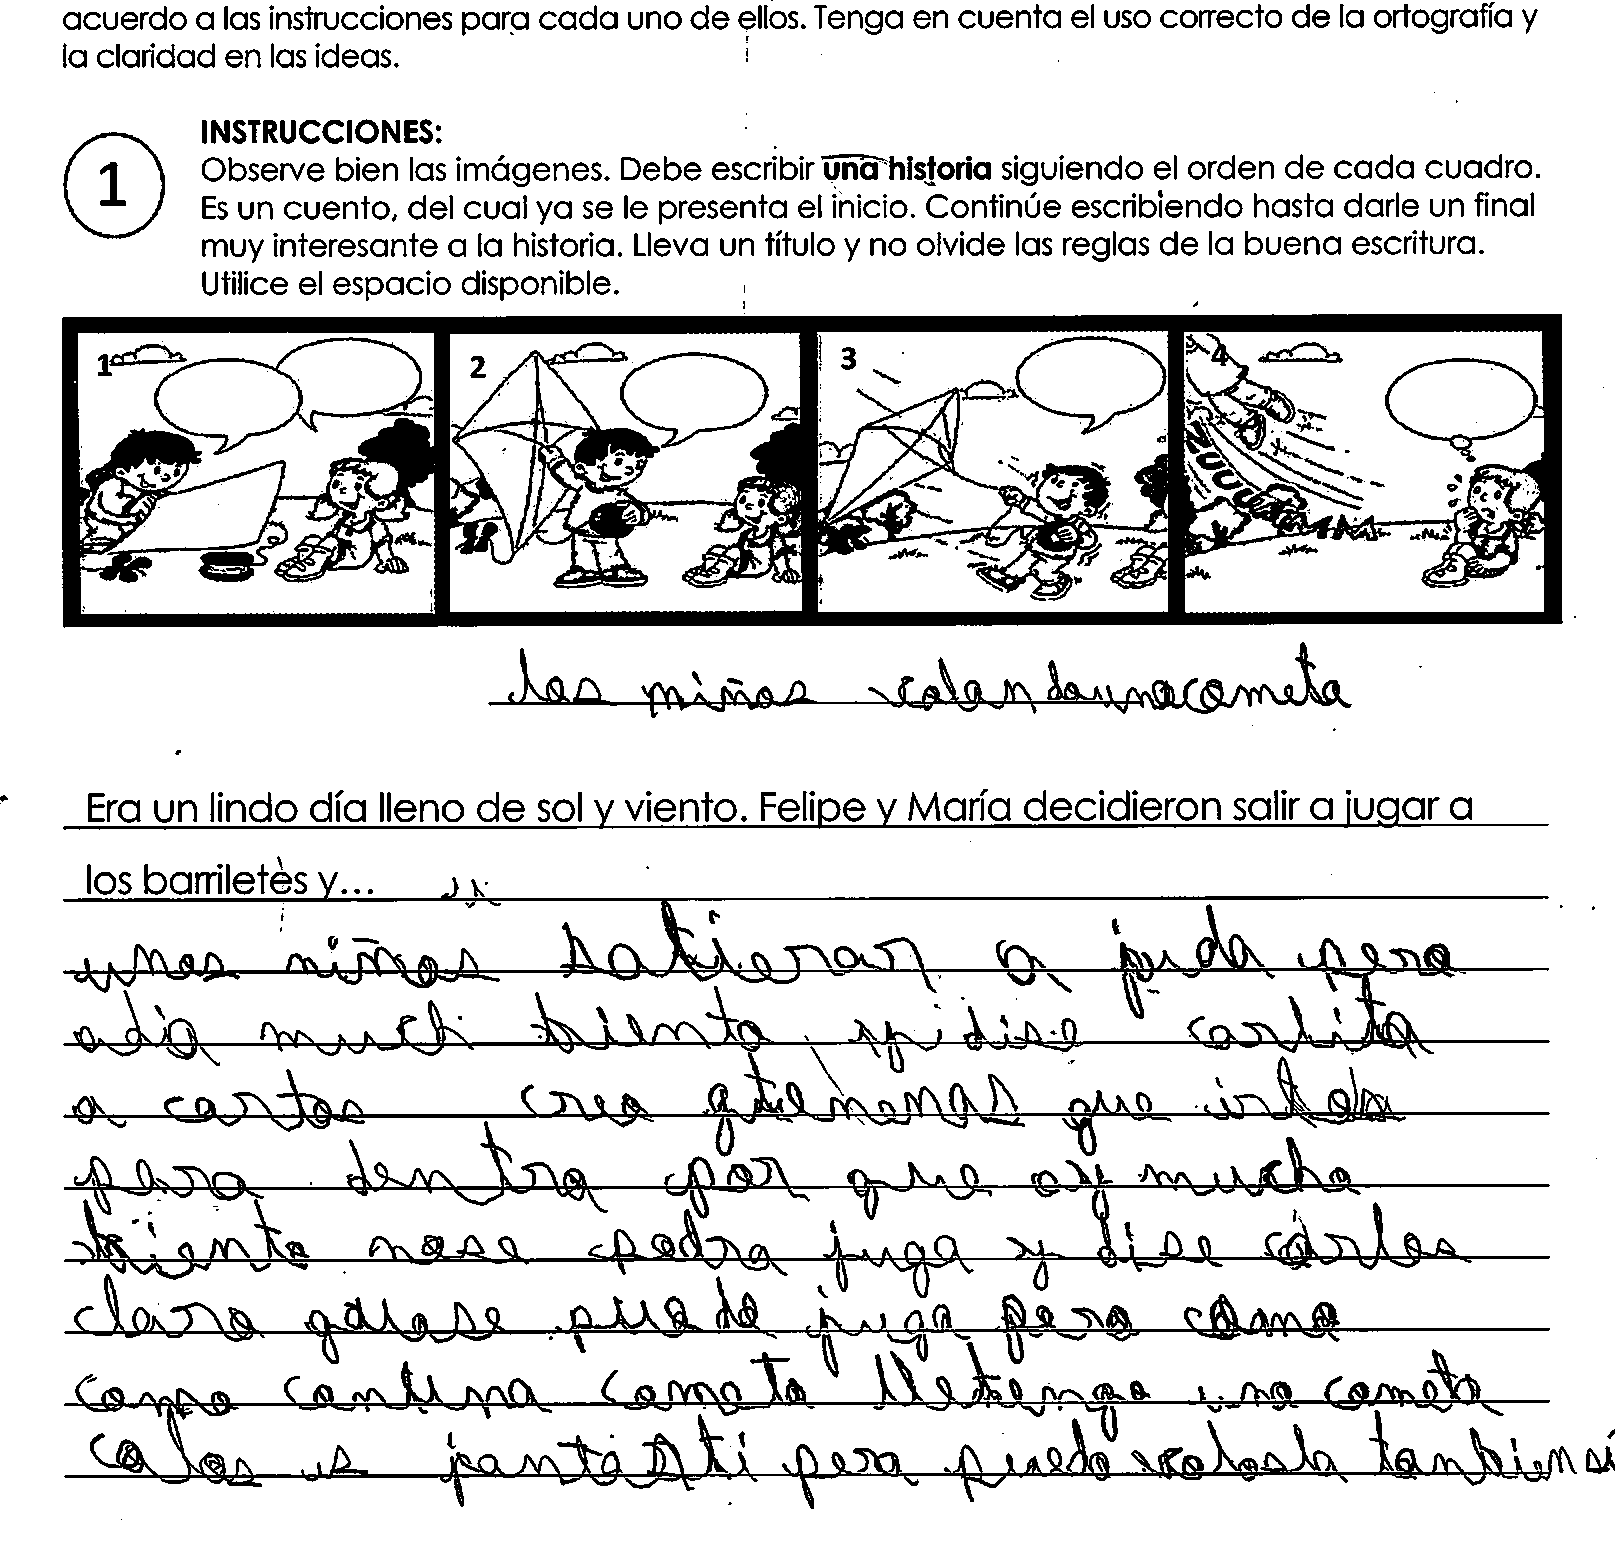 acuerdo a las instrucciones para cada uno de ellos. Tenga en cuenta el uso correcto de la ortografía y
la claridad en las ideas.
INSTRUCCIONES:
1
Observe bien las imágenes. Debe escribir una historia siguiendo el orden de cada cuadro.
Es un cuento, del cual ya se le presenta el inicio. Continúe escribiendo hasta darle un final
muy interesante a la historia. Lleva un título y no olvide las reglas de la buena escritura.
Utilice el espacio disponible.
1 2 3 4
ZUUUU
los niños colando una cometa
Era un lindo día lleno de sol y viento. Felipe y María decidieron salir a jugar a
los barriletes y...
unos niños salieron a
adia much biento y dise carlita
a carlos creo que
para dentro por que ay mucho
biento nose podra juga y dise carlos
claro puede juga pero como
como cometa una cometa
pero puedo tanbien si